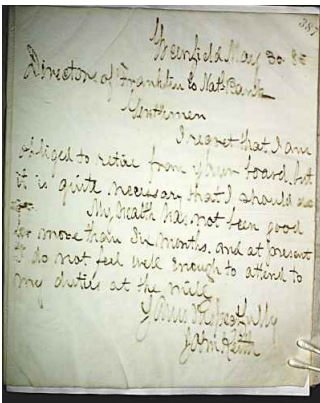 387
Greenfield May 30 85
Directors of Franklin Co Nat'l Bank
Gentlemen
I regret that I am
obliged to retire from your board, but
it is quite necessary that I should
My health has not been good
for more than six months, and at present
I do not feel well enough to attend to
my duties at the mill
Yours Respectfully